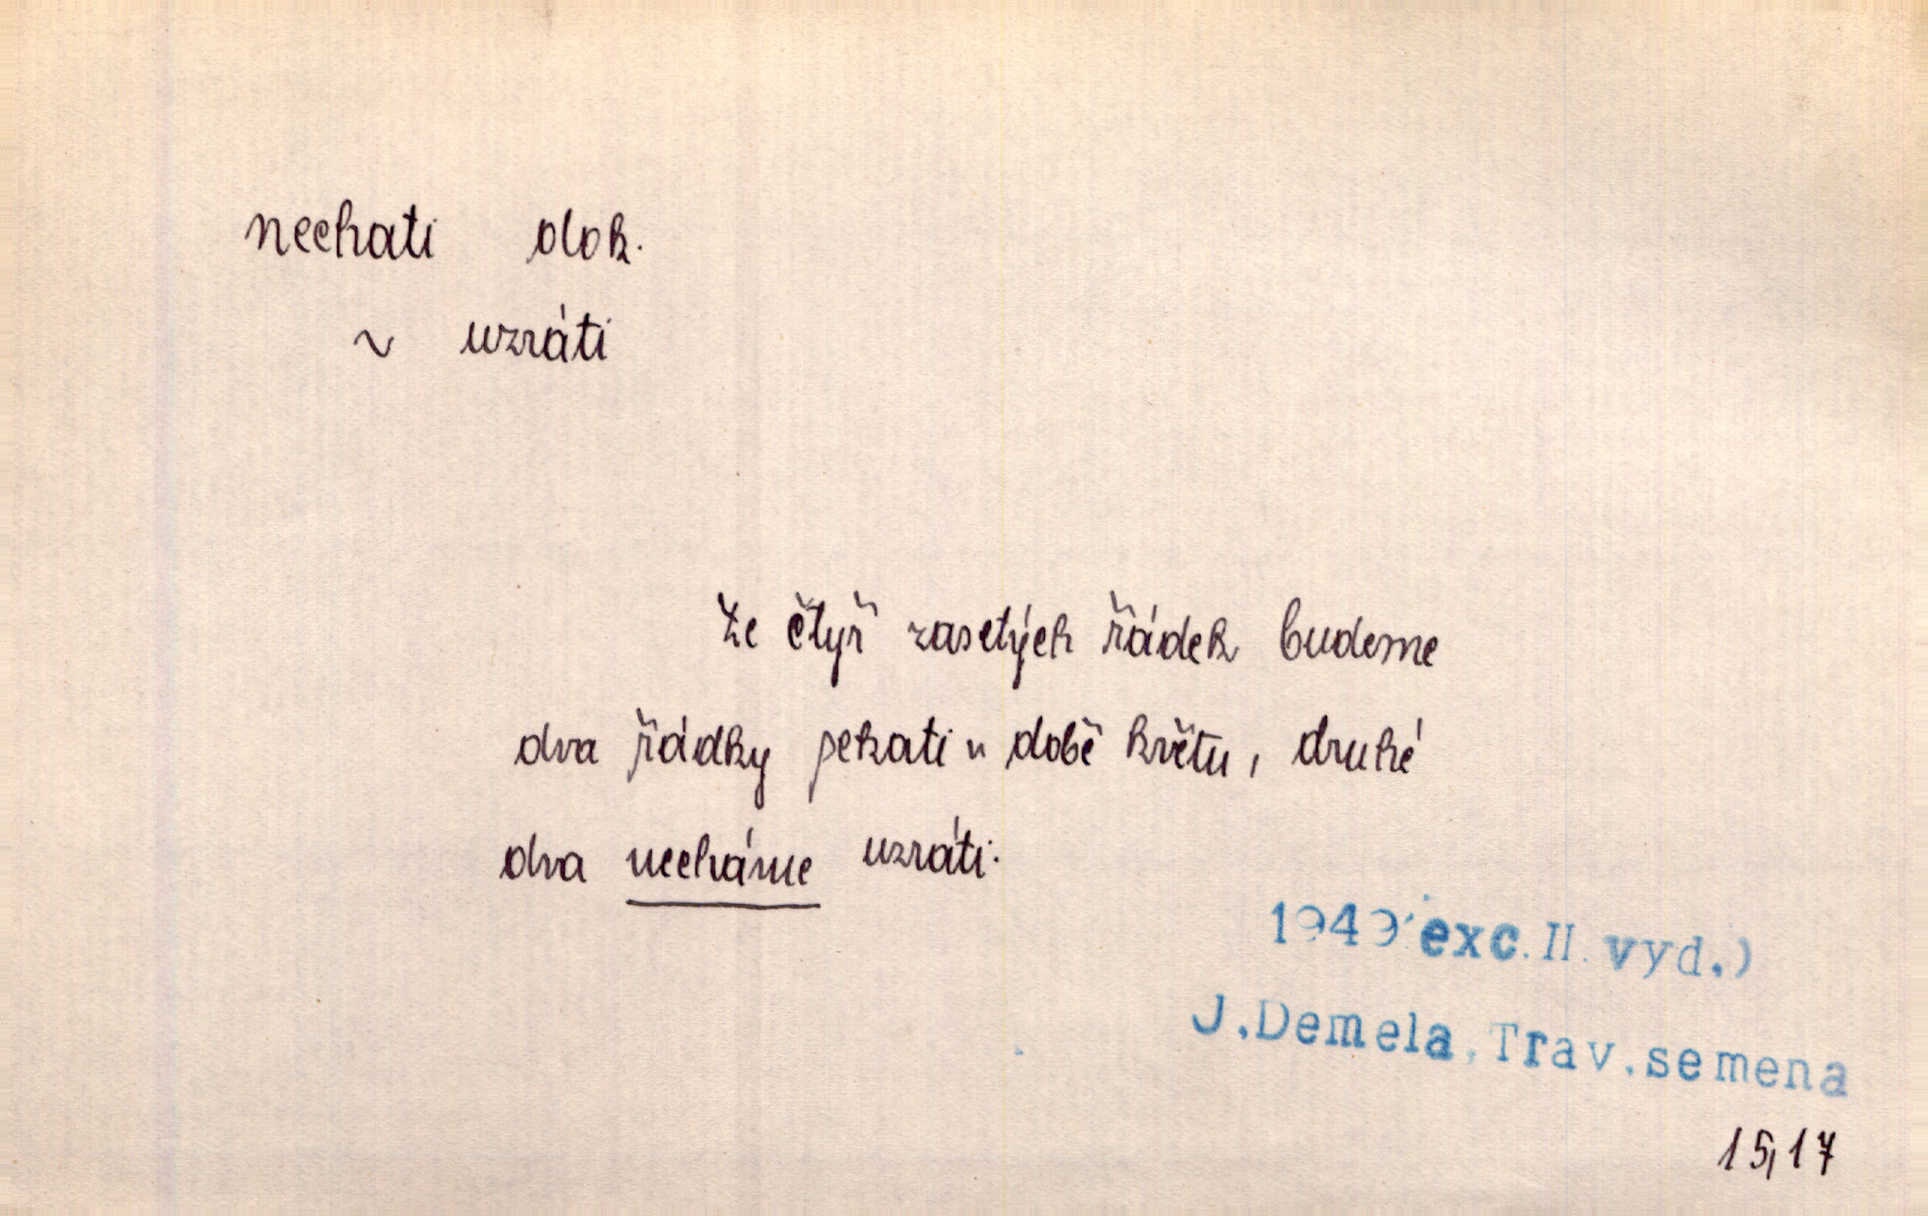 nechati dok.
~ uzráti
Ze čtyř zasetých řádek budeme
dva řádky sekati v době květu, druhé
dva necháme uzráti.
1949 exc. II. vyd.)
J. Demela, Trav. semena
15,17